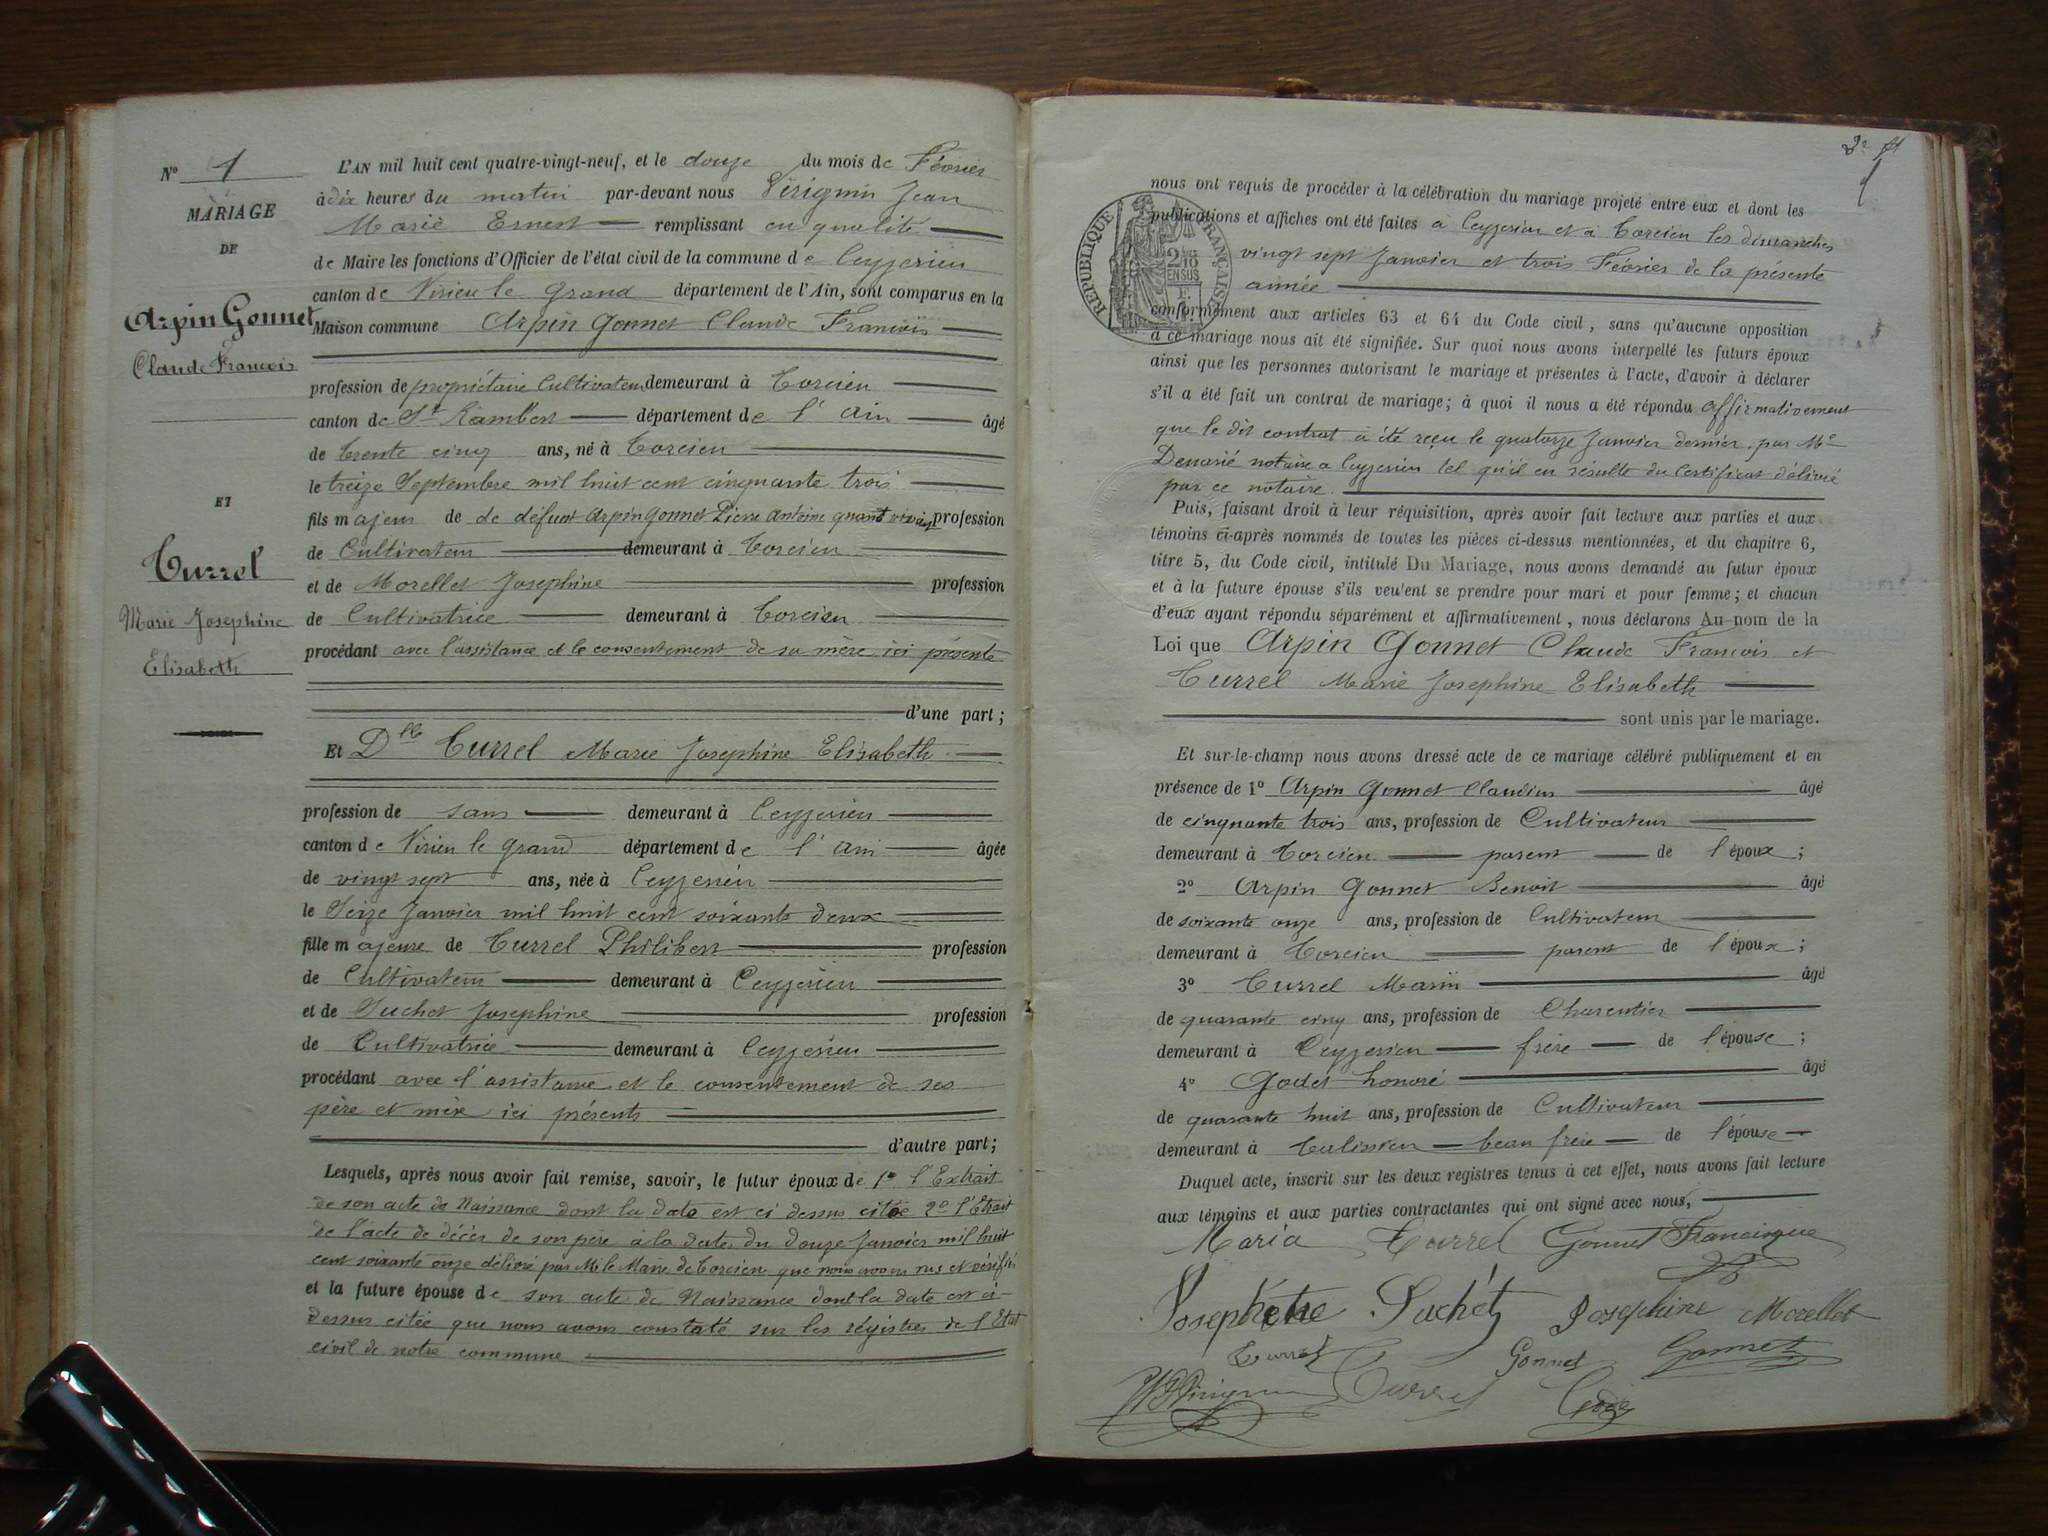 N° 1
MARIAGE
DE
Arpin Gonnet
Claude François
ET
Turrel
Marie Josephine
Elisabeth
L'AN mil huit cent quatre-vingt-neuf, et le douze du mois de Février
à dix heures du matin par-devant nous Virignin Jean
Marie Ernest remplissant en qualité
de Maire les fonctions d'Officier de l'état civil de la commune de Ceyzerieu
canton de Virieu le grand département de l'Ain, sont comparus en la
Maison commune Arpin Gonnet Claude François
profession de propriétaire Cultivateur demeurant à Torcieu
canton de St Rambert département de l'Ain âgé
de trente cinq ans, né à Torcieu
le treize Septembre mil huit cent cinquante trois
fils majeur de de défunt Arpin Gonnet Pierre Antoine quand vivait profession
de Cultivateur demeurant à Torcieu
et de Morellet Josephine profession
de Cultivatrice demeurant à Torcieu
procédant avec l'assistance et le consentement de sa mère ici présente
d'une part;
Et Dlle Turrel Marie Josephine Elisabeth
profession de sans demeurant à Ceyzerieu
canton de Virieu le grand département de l'Ain âgée
de vingt sept ans, née à Ceyzerieu
le Seize Janvier mil huit cent soixante deux
fille majeure de Turrel Philibert profession
de Cultivateur demeurant à Ceyzerieu
et de Suchet Josephine profession
de Cultivatrice demeurant à Ceyzerieu
procédant avec l'assistance et le consentement de ses
père et mère ici présents
d'autre part;
Lesquels, après nous avoir fait remise, savoir, le futur époux de 1° l'Extrait
de son acte de Naissance dont la date est ci dessus citée 2° l'Etrait
de l'acte de décès de son père à la date du douze Janvier mil huit
cent soixante onze délivré par Mr le Maire de Torcieu que nous avons vus et vérifiés
et la future épouse de son acte de Naissance dont la date est ci-
dessus citée que nous avons constaté sur les régistres de l'Etat
civil de notre commune
nous ont requis de procéder à la célébration du mariage projeté entre eux et dont les
publications et affiches ont été faites à Ceyzerieu et à Torcieu les dimanches
vingt sept Janvier et trois Février de la présente
année
RÉPUBLIQUE FRANÇAISE
2/10 EN SUS
conformément aux articles 63 et 64 du Code civil, sans qu'aucune opposition
à ce mariage nous ait été signifiée. Sur quoi nous avons interpellé les futurs époux
ainsi que les personnes autorisant le mariage et présentes à l'acte, d'avoir à déclarer
s'il a été fait un contrat de mariage; à quoi il nous a été répondu affirmativement
que le dit contrat a été reçu le quatorze Janvier dernier par Me
Demarié notaire a Ceyzerieu tel qu'il en résulte du certificat délivré
par ce notaire.
Puis, faisant droit à leur réquisition, après avoir fait lecture aux parties et aux
témoins ci-après nommés de toutes les pièces ci-dessus mentionnées, et du chapitre 6,
titre 5, du Code civil, intitulé Du Mariage, nous avons demandé au futur époux
et à la future épouse s'ils veulent se prendre pour mari et pour femme; et chacun
d'eux ayant répondu séparément et affirmativement, nous déclarons Au nom de la
Loi que Arpin Gonnet Claude François et
Turrel Marie Josephine Elisabeth
sont unis par le mariage.
Et sur-le-champ nous avons dressé acte de ce mariage célébré publiquement et en
présence de 1° Arpin Gonnet Claudius âgé
de cinquante trois ans, profession de Cultivateur
demeurant à Torcieu parent de l'époux;
2° Arpin Gonnet Benoit âgé
de soixante onze ans, profession de Cultivateur
demeurant à Torcieu parent de l'époux;
3° Turrel Marin âgé
de quarante cinq ans, profession de Charentier
demeurant à Ceyzerieu frère de l'épouse;
4° Godet honoré âgé
de quarante huit ans, profession de Cultivateur
demeurant à Talissieu beau frère de l'épouse
Duquel acte, inscrit sur les deux registres tenus à cet effet, nous avons fait lecture
aux témoins et aux parties contractantes qui ont signé avec nous,
Maria Turrel Gonnet Francisque
Josephetne Suchet Josephine Morellet
Turrel Gonnet Gonnet
Virignin Turrel Godet